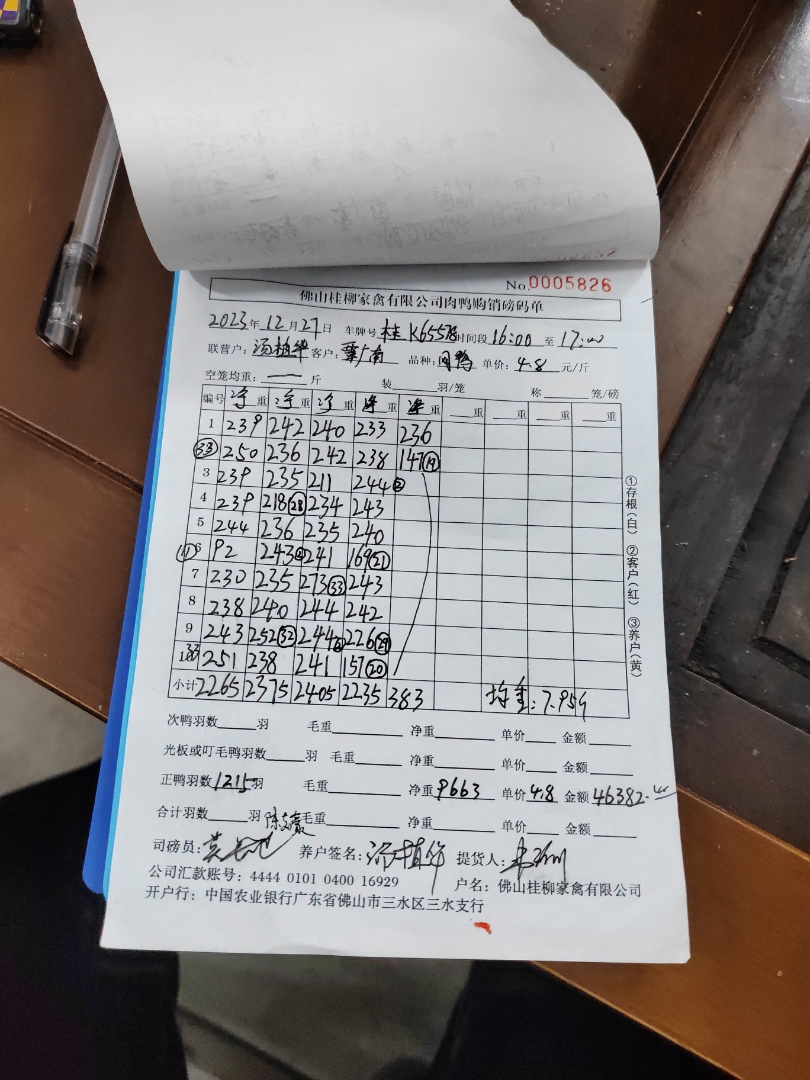 No.0005826
佛山桂柳家禽有限公司肉鸭购销磅码单
2023年12月27日 车牌号 桂K65578 时间段 16:00 至 17:00
联营户: 汤植华 客户: 覃广南 品种: 肉鸭 单价: 4.8 元/斤
空笼均重: 一 斤 装 羽/笼 称 笼/磅
编号 净重 净重 净重 净重 净重 重 重 重 重
1 239 242 240 233 236
㉝ 250 236 242 238 147⑲
3 239 235 211 244②
4 239 218㉘ 234 243
5 244 236 235 240
⑪6 92 243 241 169㉑
7 230 235 273㉝ 243
8 238 240 244 242
9 243 252㉜ 244 226㉙
10 33 251 238 241 157⑳
小计 2265 2375 2405 2235 383 均重: 7.959
①存根(白) ②客户(红) ③养户(黄)
次鸭羽数 羽 毛重 净重 单价 金额
光板或叮毛鸭羽数 羽 毛重 净重 单价 金额
正鸭羽数 1215 羽 毛重 净重 9663 单价 4.8 金额 46382.
合计羽数 羽 毛重 净重 单价 金额
司磅员: 养户签名: 汤植华 提货人:
公司汇款账号: 4444 0101 0400 16929 户名: 佛山桂柳家禽有限公司
开户行: 中国农业银行广东省佛山市三水区三水支行